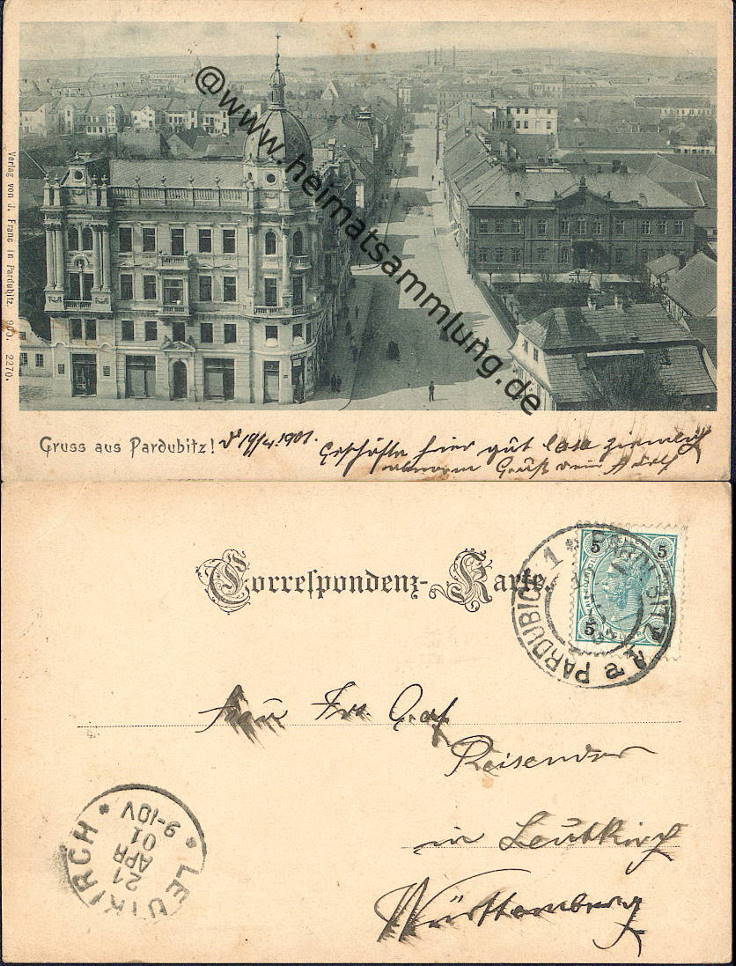 @www.heimatsammlung.de
Verlag von J. Franc in Pardubitz. 900. 2270.
Gruss aus Pardubitz! 19/4.1901.
Geschäfte hier gut
Gruß von Adolf
Correspondenz-Karte.
5 5
5
PARDUBITZ PARDUBICE 1
Fr. Graf
Reisender
in Leutkirch
Württemberg
LEUTKIRCH
21
APR
01
9-10V